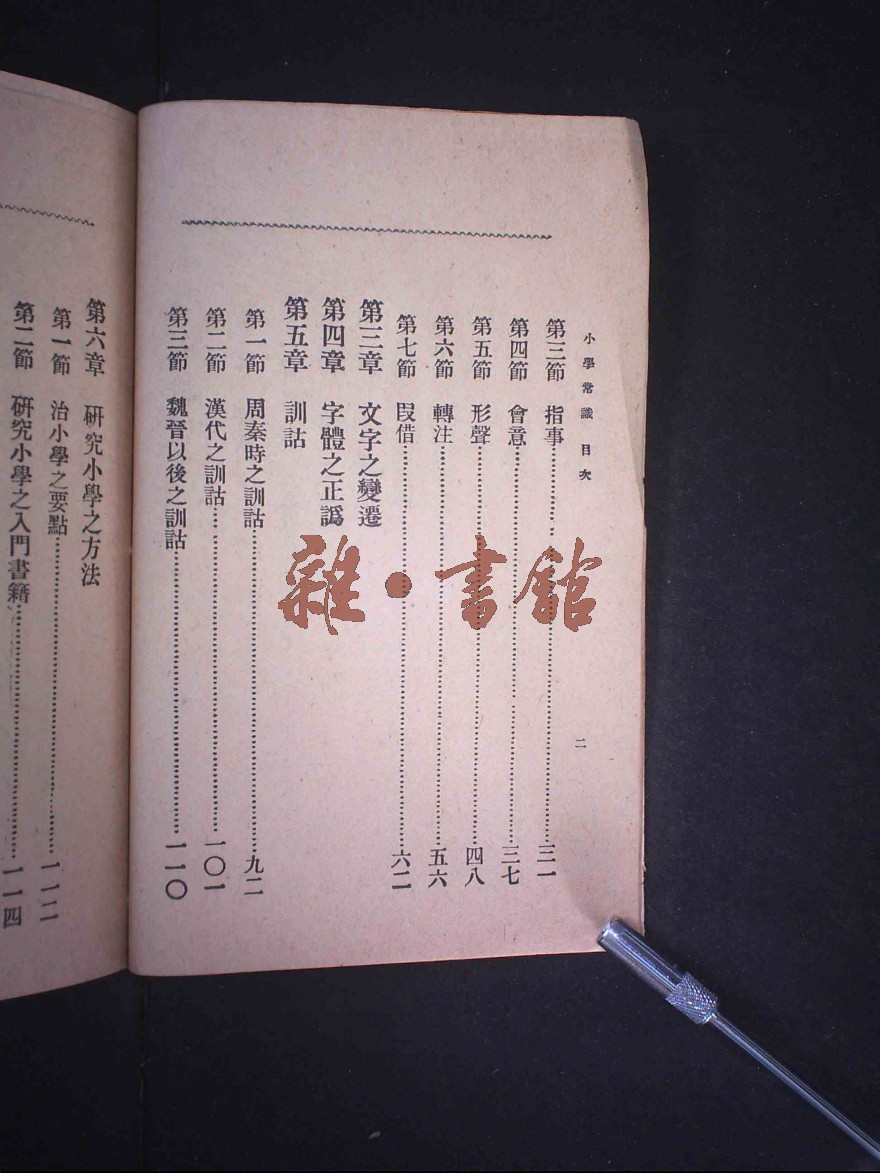 小學常識 目次
二
第三節 指事……三一
第四節 會意……三七
第五節 形聲……四八
第六節 轉注……五六
第七節 叚借……六二
第三章 文字之變遷
第四章 字體之正譌
第五章 訓詁
第一節 周秦時之訓詁……九二
第二節 漢代之訓詁……一〇一
第三節 魏晉以後之訓詁……一一〇
第六章 研究小學之方法
第一節 治小學之要點……一一二
第二節 研究小學之入門書籍……一一四
雜·書館